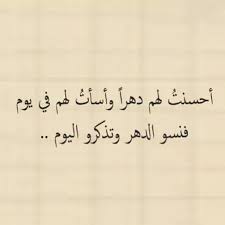 أحسنتُ لهم دهراً وأسأتُ لهم في يوم
فنسو الدهر وتذكرو اليوم ..